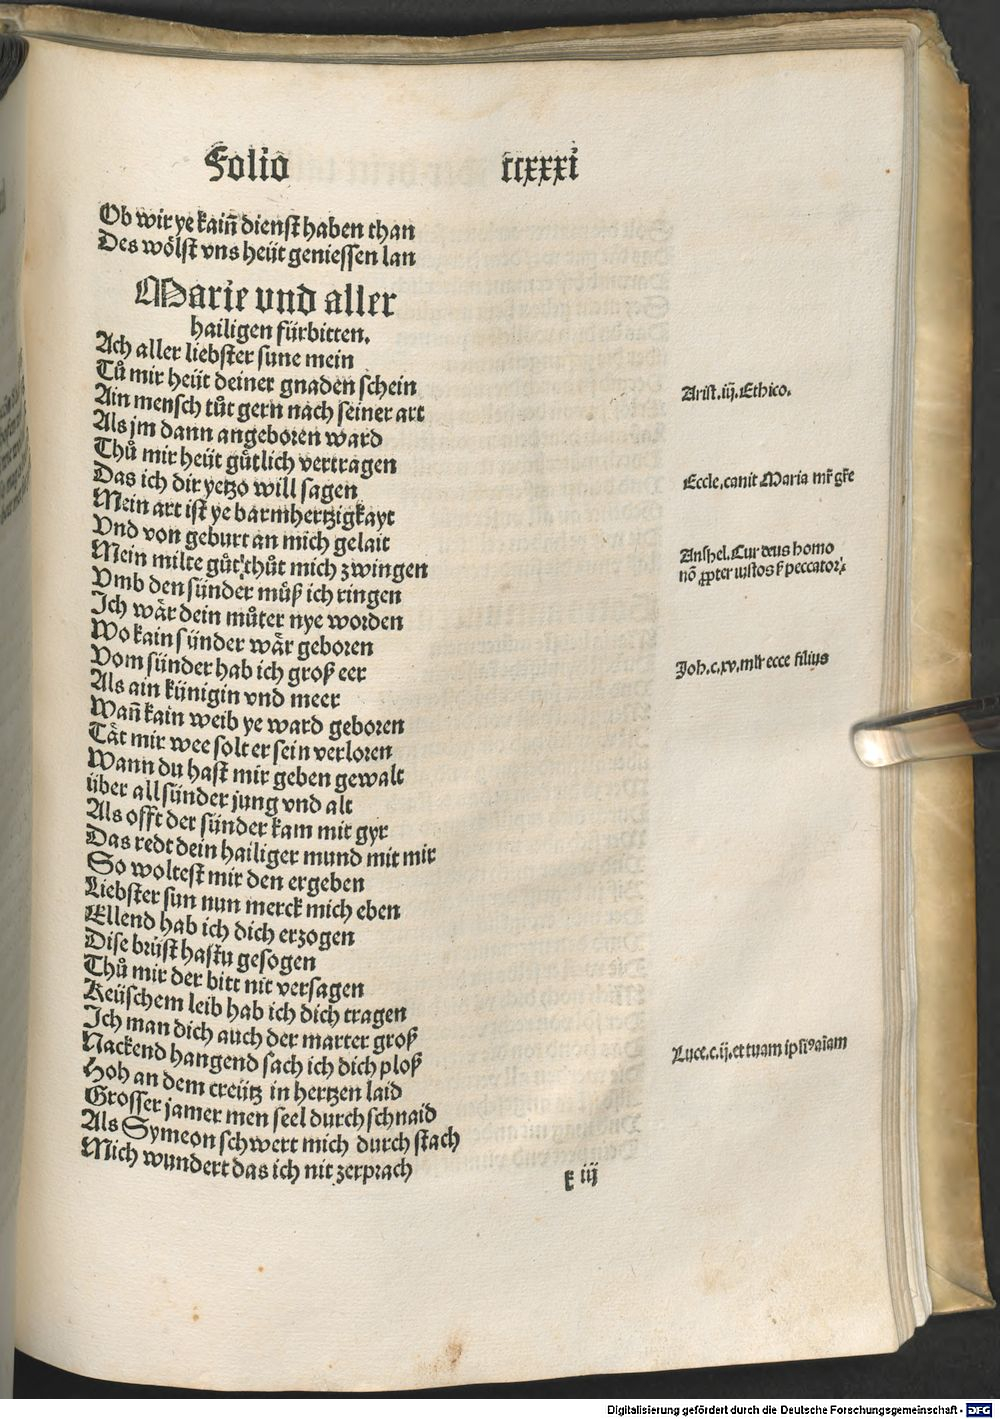 Folio ccxxxi
Ob wir ye kain̄ dienst haben than
Des wölst vns heüt geniessen lan
Marie vnd aller
hailigen fürbitten.
Ach aller liebster sune mein
Tů mir heüt deiner gnaden schein
Ain mensch tůt gern nach seiner art
Als jm dann angeboren ward
Thů mir heüt gůtlich vertragen
Das ich dir yetzo will sagen
Mein art ist ye barmhertzigkayt
Vnd von geburt an mich gelait
Mein milte gůt thůt mich zwingen
Vmb den sünder můß ich ringen
Ich wär dein můter nye worden
Wo kain sünder wär geboren
Vom sünder hab ich groß eer
Als ain künigin vnd meer
Wan̄ kain weib ye ward geboren
Tät mir wee solt er sein verloren
Wann du hast mir geben gewalt
über all sünder jung vnd alt
Als offt der sünder kam mit gyr
Das redt dein hailiger mund mit mir
So woltest mir den ergeben
Liebster sun nun merck mich eben
Ellend hab ich dich erzogen
Dise brüst hastu gesogen
Thů mir der bitt nit versagen
Keüschem leib hab ich dich tragen
Ich man dich auch der marter groß
Nackend hangend sach ich dich ploß
Hoh an dem creütz in hertzen laid
Grosser jamer men seel durchschnaid
Als Symeon schwert mich durch stach
Mich wundert das ich nit zerprach
Arist. iij. Ethico.
Eccle. canit Maria mr̄ gr̄e
Anshel. Cur deus homo
nō ꝓpter iustos ß peccatorꝝ
Joh. c. xv. mlr̄ ecce filius
Luce. c. ij. et tuam ipsiꝰ aīam
k iij
Digitalisierung gefördert durch die Deutsche Forschungsgemeinschaft - DFG